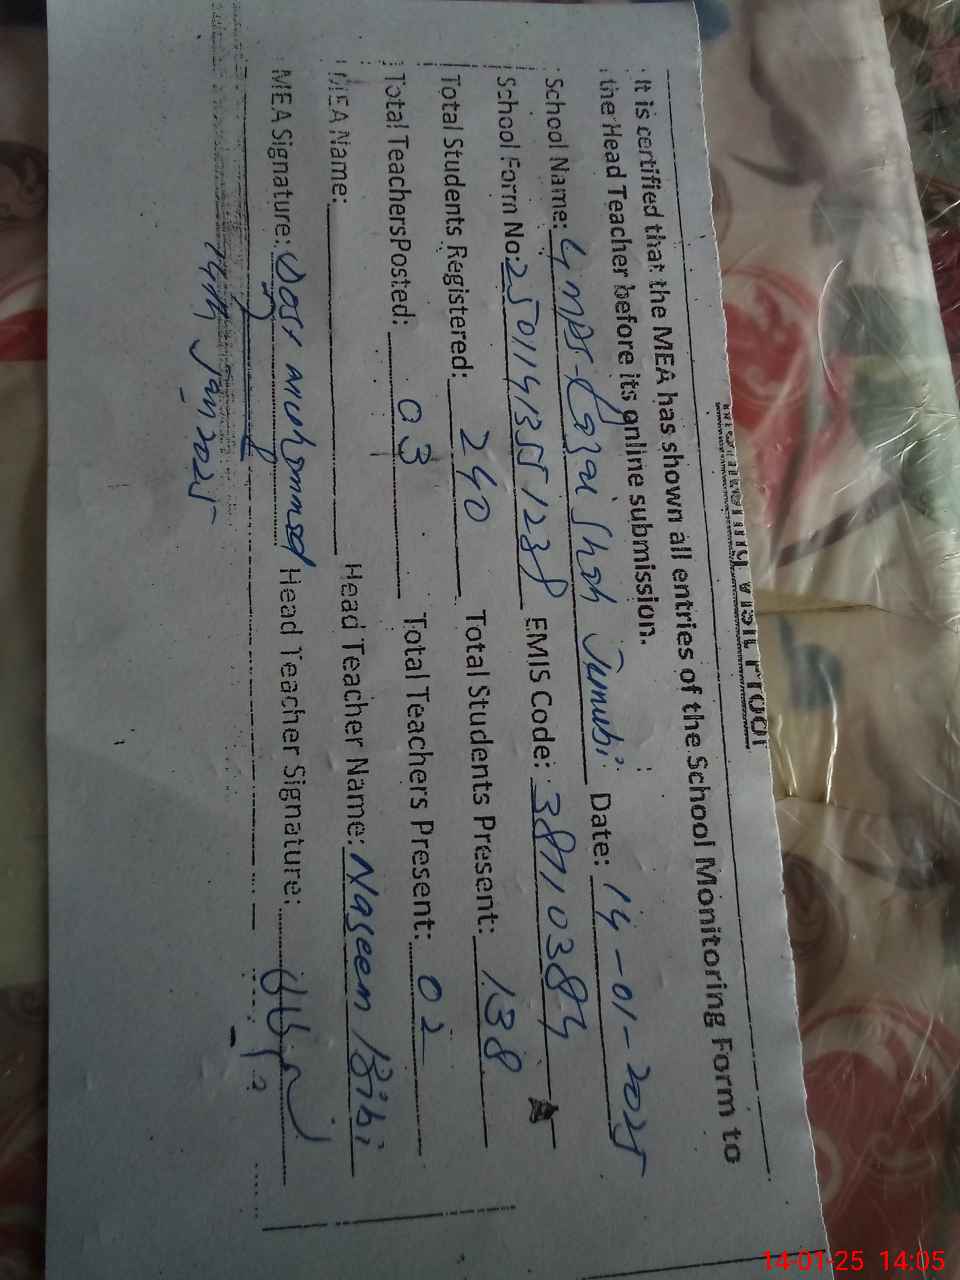 Monitoring Visit Proof
It is certified that the MEA has shown all entries of the School Monitoring Form to
the Head Teacher before its online submission.
School Name: Gmps Shah Junubi Date: 14-01-2025
School Form No: 25011413551238 EMIS Code: 38710384
Total Students Registered: 240 Total Students Present: 138
Total TeachersPosted: 03 Total Teachers Present: 02
MEA Name: Head Teacher Name: Naseem Bibi
MEA Signature: Dost muhammad Head Teacher Signature:
14th Jan 2025
14-01-25 14:05